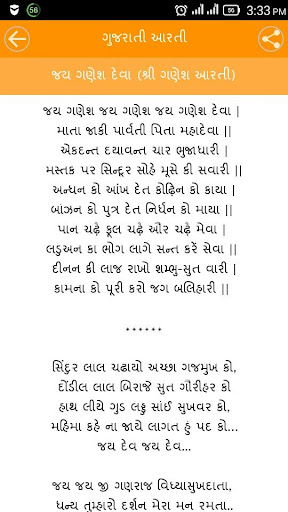 58
3:33 PM
ગુજરાતી આરતી
જય ગણેશ દેવા (શ્રી ગણેશ આરતી)
જય ગણેશ જય ગણેશ જય ગણેશ દેવા |
માતા જાકી પાર્વતી પિતા મહાદેવા ||
એકદન્ત દયાવન્ત ચાર ભુજાધારી |
મસ્તક પર સિન્દૂર સોહે મૂસે કી સવારી ||
અન્ધન કો આંખ દેત કોઢ઼િન કો કાયા |
બાંઝન કો પુત્ર દેત નિર્ધન કો માયા ||
પાન ચઢ઼ે ફૂલ ચઢ઼ે ઔર ચઢ઼ે મેવા |
લડુઅન કા ભોગ લાગે સન્ત કરેં સેવા ||
દીનન કી લાજ રાખો શમ્ભુ-સુત વારી |
કામના કો પૂરી કરો જગ બલિહારી ||
******
સિંદુર લાલ ચઢાયો અચ્છા ગજમુખ કો,
દોંડીલ લાલ બિરાજે સુત ગૌરીહર કો
હાથ લીયે ગુડ લડ્ડુ સાંઈ સુખવર કો,
મહિમા કહે ના જાયે લાગત હું પદ કો...
જય દેવ જય દેવ...
જય જય જી ગણરાજ વિધ્યાસુખદાતા,
ધન્ય તુમ્હારો દર્શન મેરા મન રમતા..